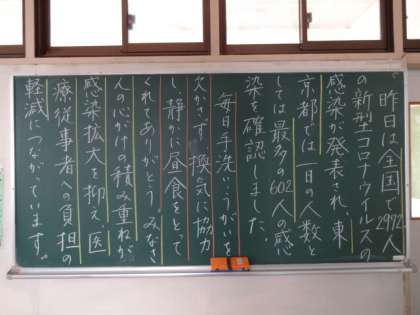 昨日は全国で2972人
の新型コロナウイルスの
感染が発表され、東
京都では一日の人数と
しては最多の602人の感
染を確認しました。
毎日手洗い、うがいを
欠かさず、換気に協力
し、静かに昼食をとって
くれてありがとう。みなさ
んの心がけの積み重ねが
感染拡大を抑え、医
療従事者への負担の
軽減につながっています。